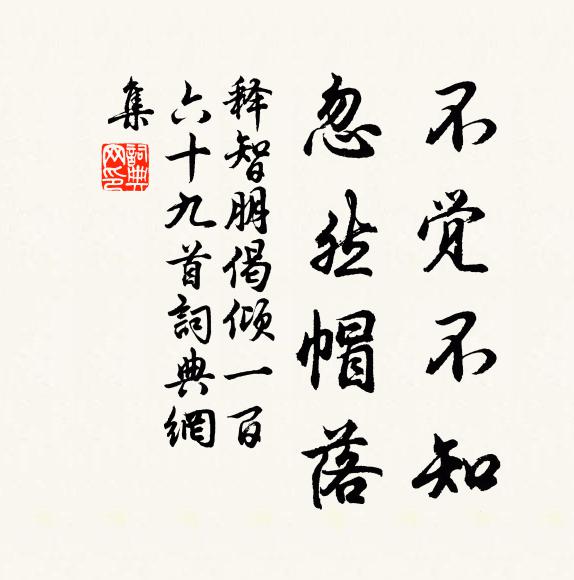 不觉不知
忽然帽落
释智朋偈倾一百
六十九首詞典網
集
詞典
网印